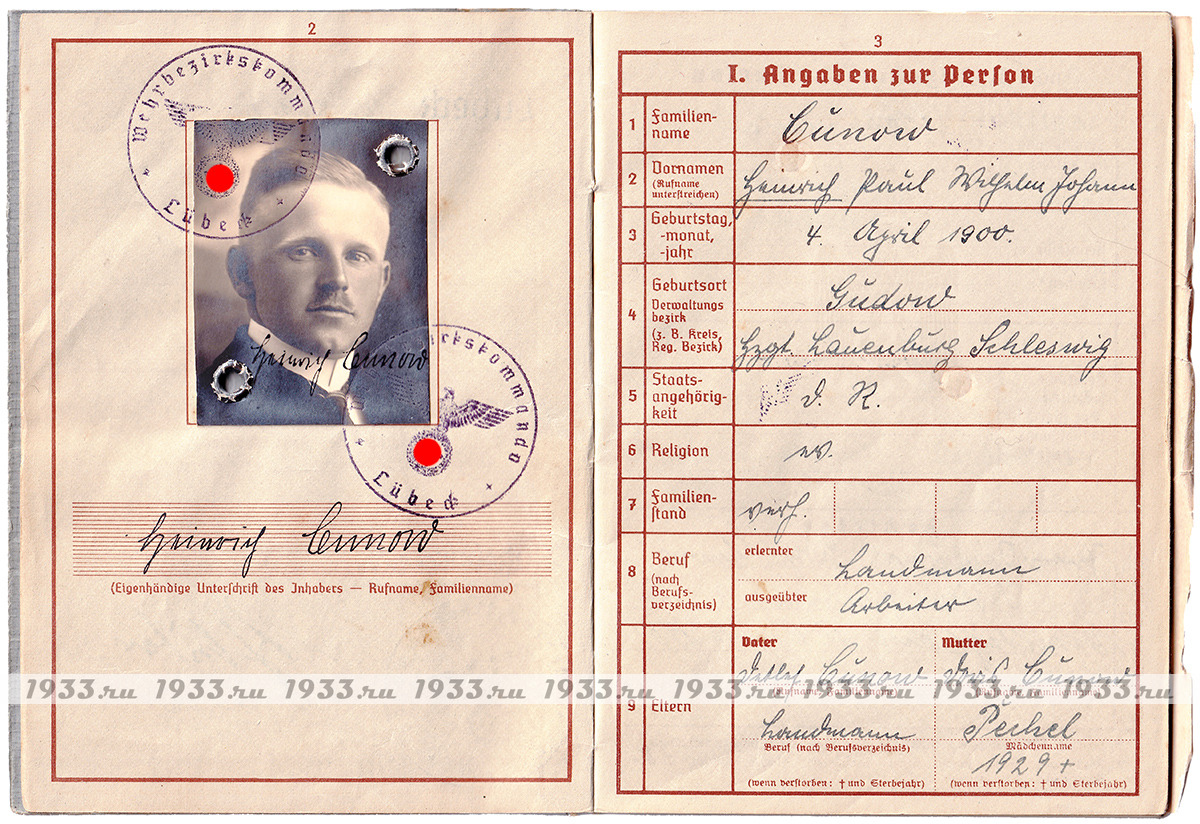 2
Wehrbezirkskommando
Lübeck
Heinrich Cunow
Wehrbezirkskommando
Lübeck
Heinrich Cunow
(Eigenhändige Unterschrift des Inhabers — Rufname, Familienname)
3
I. Angaben zur Person
1 Familien-
name
Cunow
2 Vornamen
(Rufname
unterstreichen)
Heinrich Paul Wilhelm Johann
3 Geburtstag,
-monat,
-jahr
4. April 1900.
4 Geburtsort
Verwaltungs
bezirk
(z. B. Kreis,
Reg. Bezirk)
Gudow
Hzgt. Lauenburg Schleswig
5 Staats-
angehörig-
keit
d. R.
6 Religion
ev.
7 Familien-
stand
verh.
8 Beruf
(nach
Berufs-
verzeichnis)
erlernter
Landmann
ausgeübter
Arbeiter
9 Eltern
Vater
Detlef Cunow
(Rufname, Familienname)
Landmann
Beruf (nach Berufsverzeichnis)
(wenn verstorben: † und Sterbejahr)
Mutter
Doris Cunow
(Rufname, Familienname)
Pechel
Mädchenname
1929 +
(wenn verstorben: † und Sterbejahr)
1933.ru 1933.ru 1933.ru 1933.ru 1933.ru 1933.ru 1933.ru 1933.ru 1933.ru